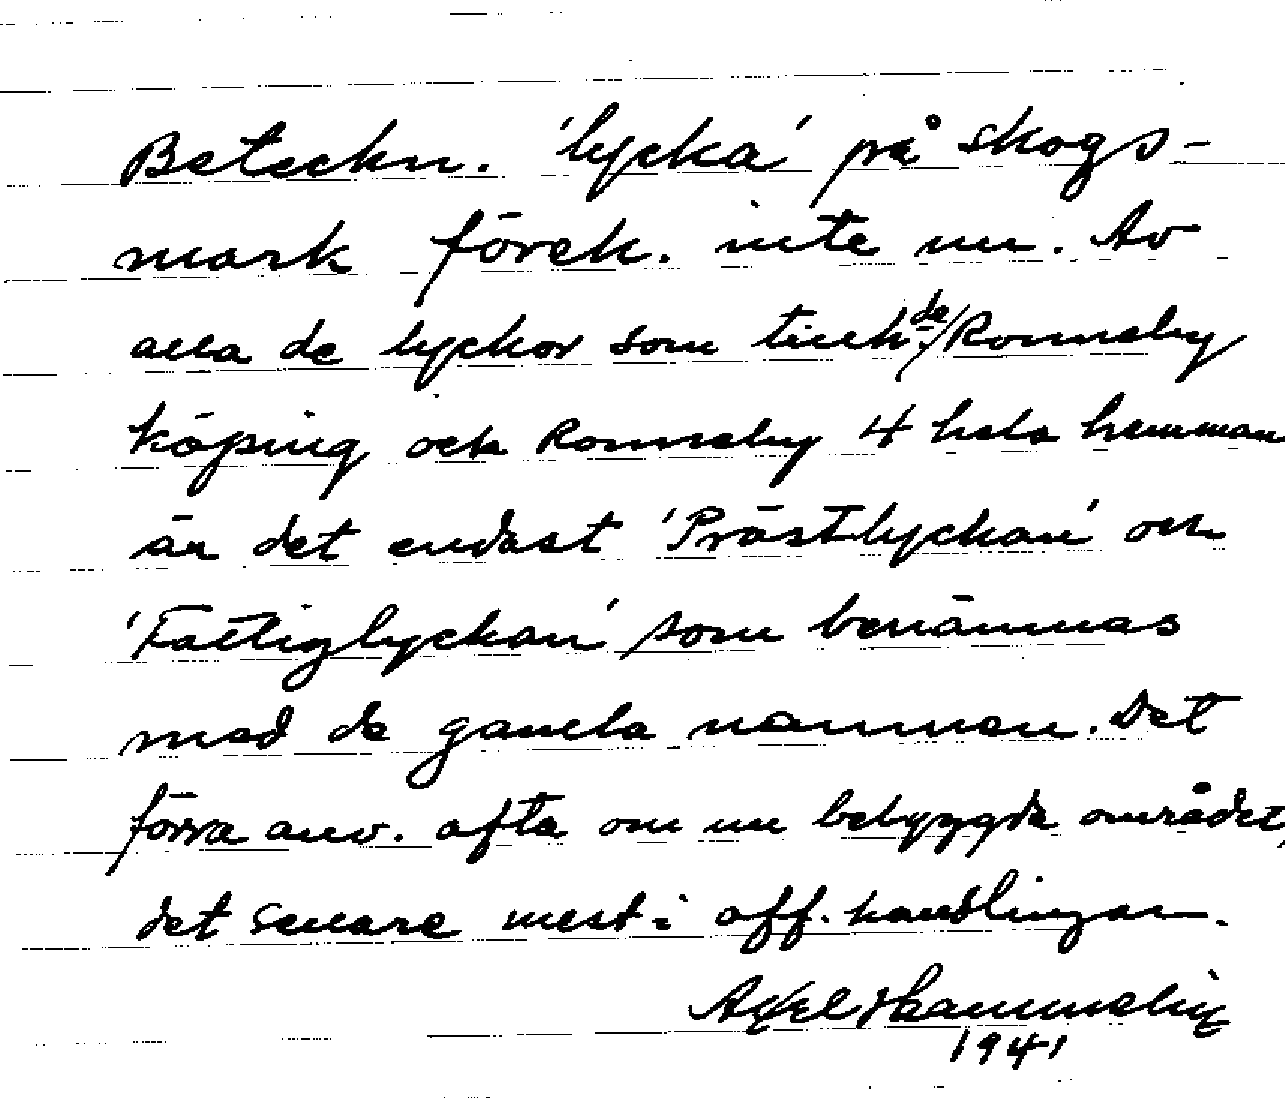 Beteckn. 'lycka' på skogs-
mark förek. inte nu. Av
alla de lyckor som tillh. de / Ronneby
köping och Ronneby 4 hela hemman
är det endast 'Prästlyckan' och
'Fattiglyckan' som benämnas
med de gamla namnen. Det
förra anv. ofta om nu bebyggda området,
det senare mest i off. handlingar.
Axel
1941